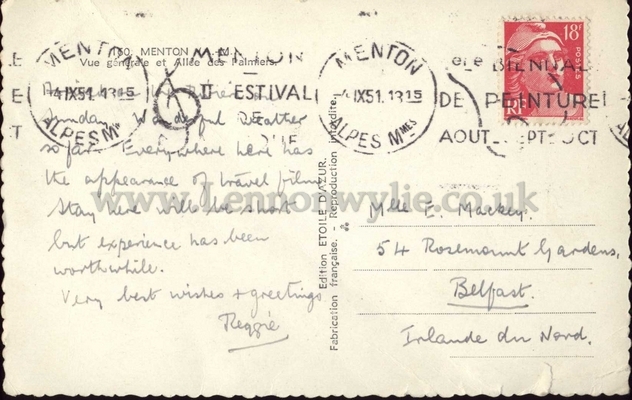 150. MENTON
Vue générale et Allée des Palmiers
MENTON
4 IX 51. 1315
ALPES Mmes
MENTON
II ESTIVAL
DE
MENTON
4 IX 51. 1315
ALPES Mmes
BIENNALE
DE PEINTURE
AOUT SEPT OCT
18F
POSTES
Sunday. Wonderful weather
so far. Everywhere here has
the appearance of travel film
Stay here will be short
but experience has been
worthwhile.
Very best wishes + greetings
Reggie
Edition ETOILE D'AZUR.
Fabrication française. - Reproduction interdite.
Mlle E. Mackey.
54 Rosemount Gardens,
Belfast.
Irlande du Nord.
www.Lennonwylie.co.uk